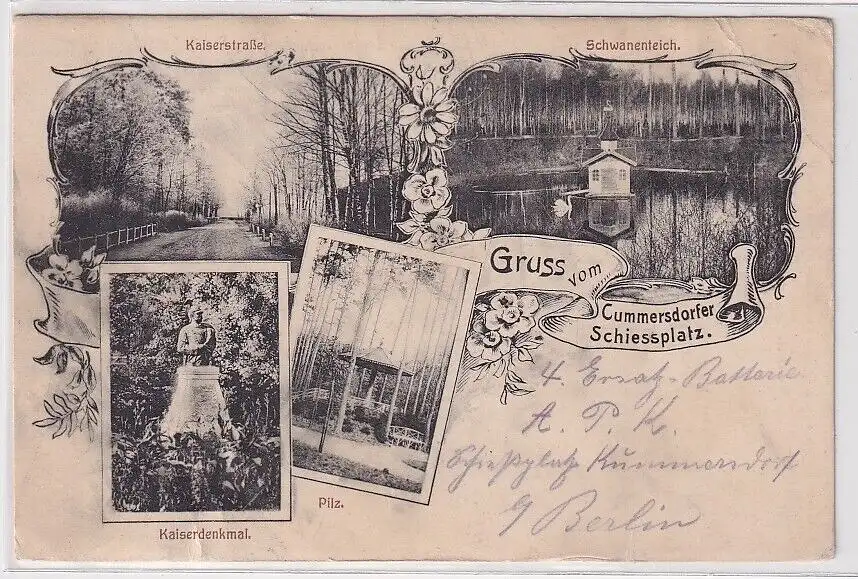 Kaiserstraße.
Schwanenteich.
Gruss vom
Cummersdorfer
Schiessplatz.
4. Ersatz-Batterie
A. P. K.
Schießplatz Kummersdorf
b/ Berlin
Pilz.
Kaiserdenkmal.